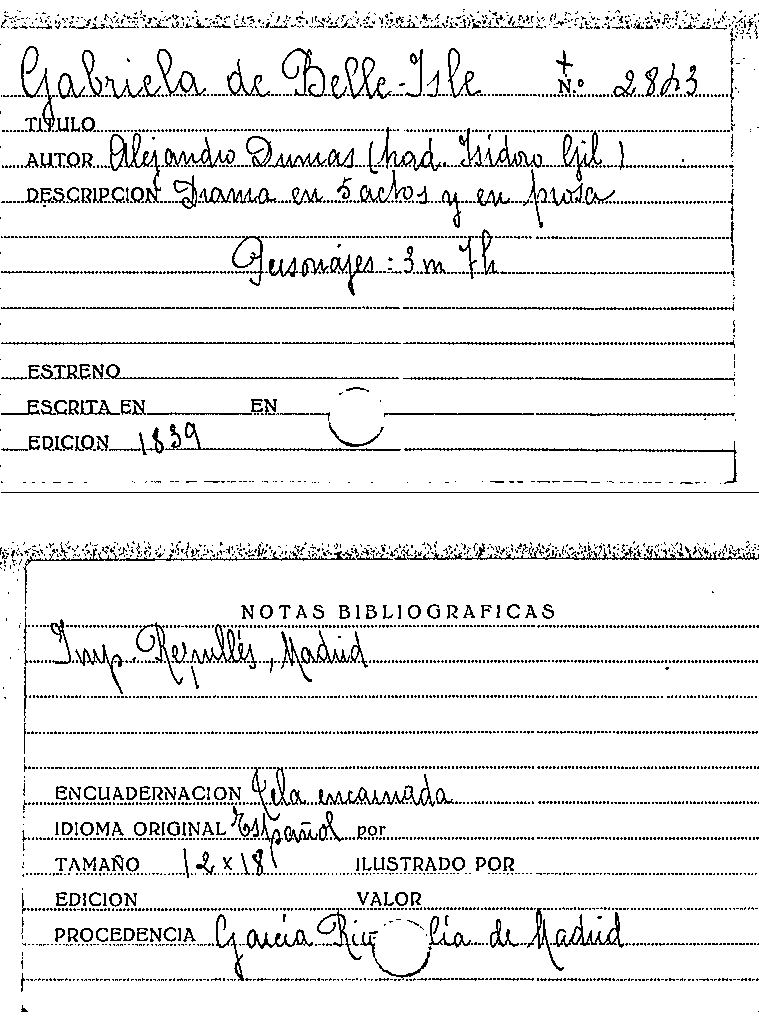 Gabriela de Belle-Isle + N.º
TITULO
AUTOR Alejandro Dumas (trad. Isidoro Gil)
DESCRIPCION Drama en 5 actos y en prosa
Personajes: 3m 7h
ESTRENO
ESCRITA EN EN
EDICION 1839
NOTAS BIBLIOGRAFICAS
Imp. Repullés, Madrid
ENCUADERNACION Tela encarnada
IDIOMA ORIGINAL Español por
TAMAÑO 12x18 ILUSTRADO POR
EDICION VALOR
PROCEDENCIA García de Madrid